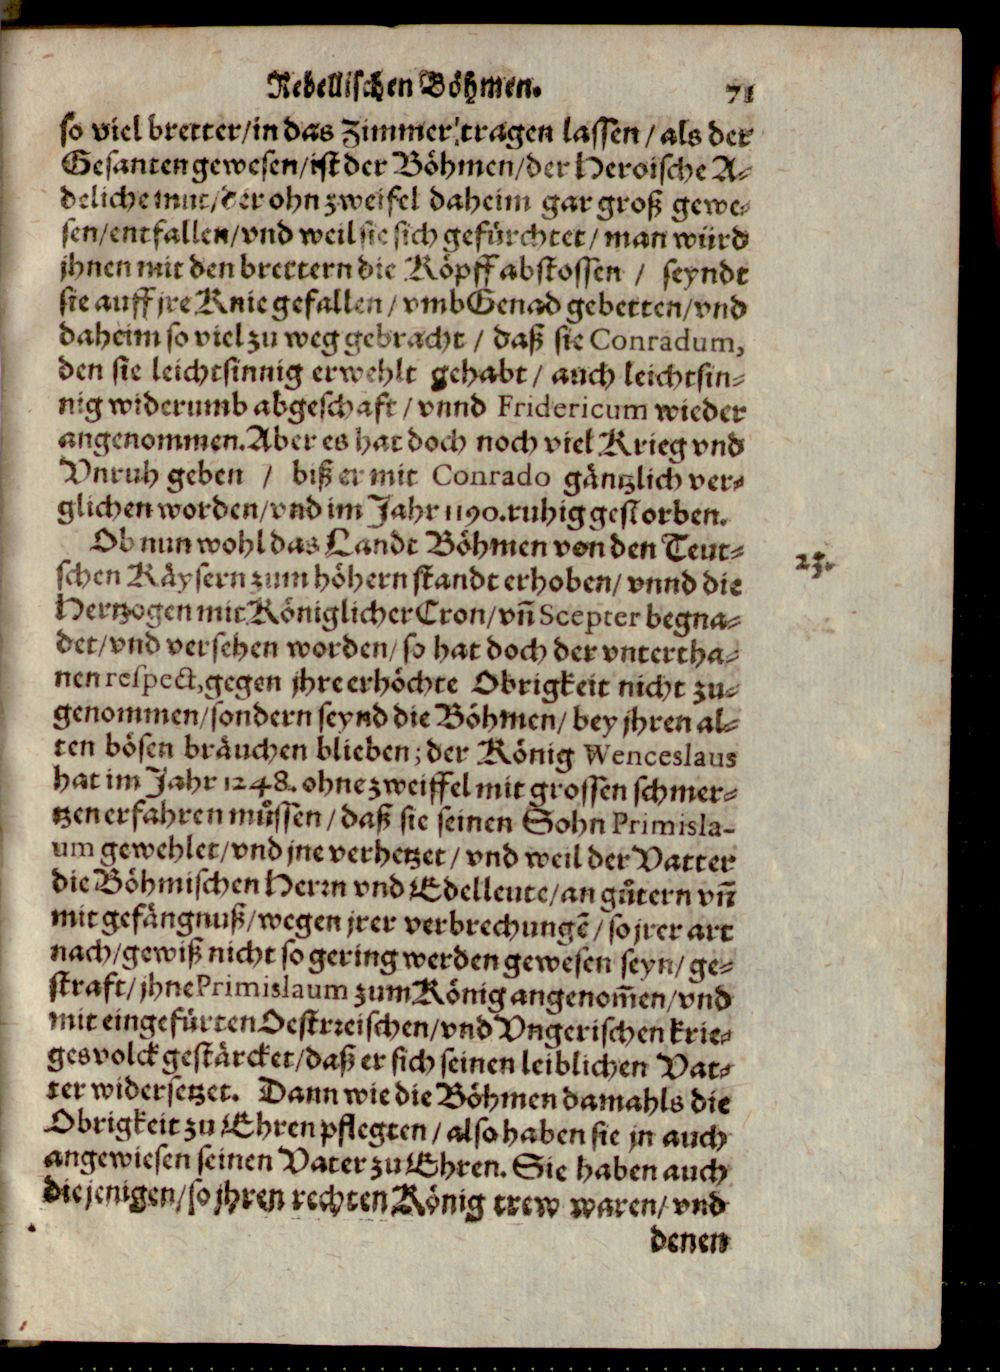 Rebellischen Böhmen. 71
so viel bretter/in das Zimmer tragen lassen/als der
Gesanten gewesen/ist der Böhmen/der Heroische A-
deliche mut/der ohn zweifel daheim gar groß gewe-
sen/entfallen/vnd weil sie sich gefürchtet/man würd
jhnen mit den brettern die Köpff abstossen / seyndt
sie auff jre Knie gefallen/vmb Genad gebetten/vnd
daheim so viel zu weg gebracht / daß sie Conradum,
den sie leichtsinnig erwehlt gehabt/ auch leichtsin-
nig widerumb abgeschaft/vnnd Fridericum wieder
angenommen. Aber es hat doch noch viel Krieg vnd
Vnruh geben / biß er mit Conrado gäntzlich ver-
glichen worden/vnd im Jahr 1190. ruhig gestorben.
Ob nun wohl das Landt Böhmen von den Teut-
23.
schen Käysern zum höhern standt erhoben/vnnd die
Hertzogen mit Königlicher Cron/vñ Scepter begna-
det/vnd versehen worden/so hat doch der vntertha-
nen respect, gegen jhre erhöchte Obrigkeit nicht zu-
genommen/sondern seynd die Böhmen/bey jhren al-
ten bösen bräuchen blieben; der König Wenceslaus
hat im Jahr 1248. ohne zweiffel mit grossen schmer-
tzen erfahren můssen/daß sie seinen Sohn Primisla-
um gewehlet/vnd jne verhetzet/vnd weil der Vatter
die Böhmischen Herrn vnd Edelleute/an gůtern vñ
mit gefängnuß/wegen jrer verbrechungẽ/so jrer art
nach/gewiß nicht so gering werden gewesen seyn/ge-
straft/jhne Primislaum zum König angenom̃en/vnd
mit eingefürten Oestrreischen/vnd Vngerischen krie-
gesvolck gestärcket/daß er sich seinen leiblichen Vat-
ter widersetzet. Dann wie die Böhmen damahls die
Obrigkeit zu Ehren pflegten/also haben sie jn auch
angewiesen seinen Vater zu Ehren. Sie haben auch
diejenigen/so jhren rechten König trew waren/vnd
denen